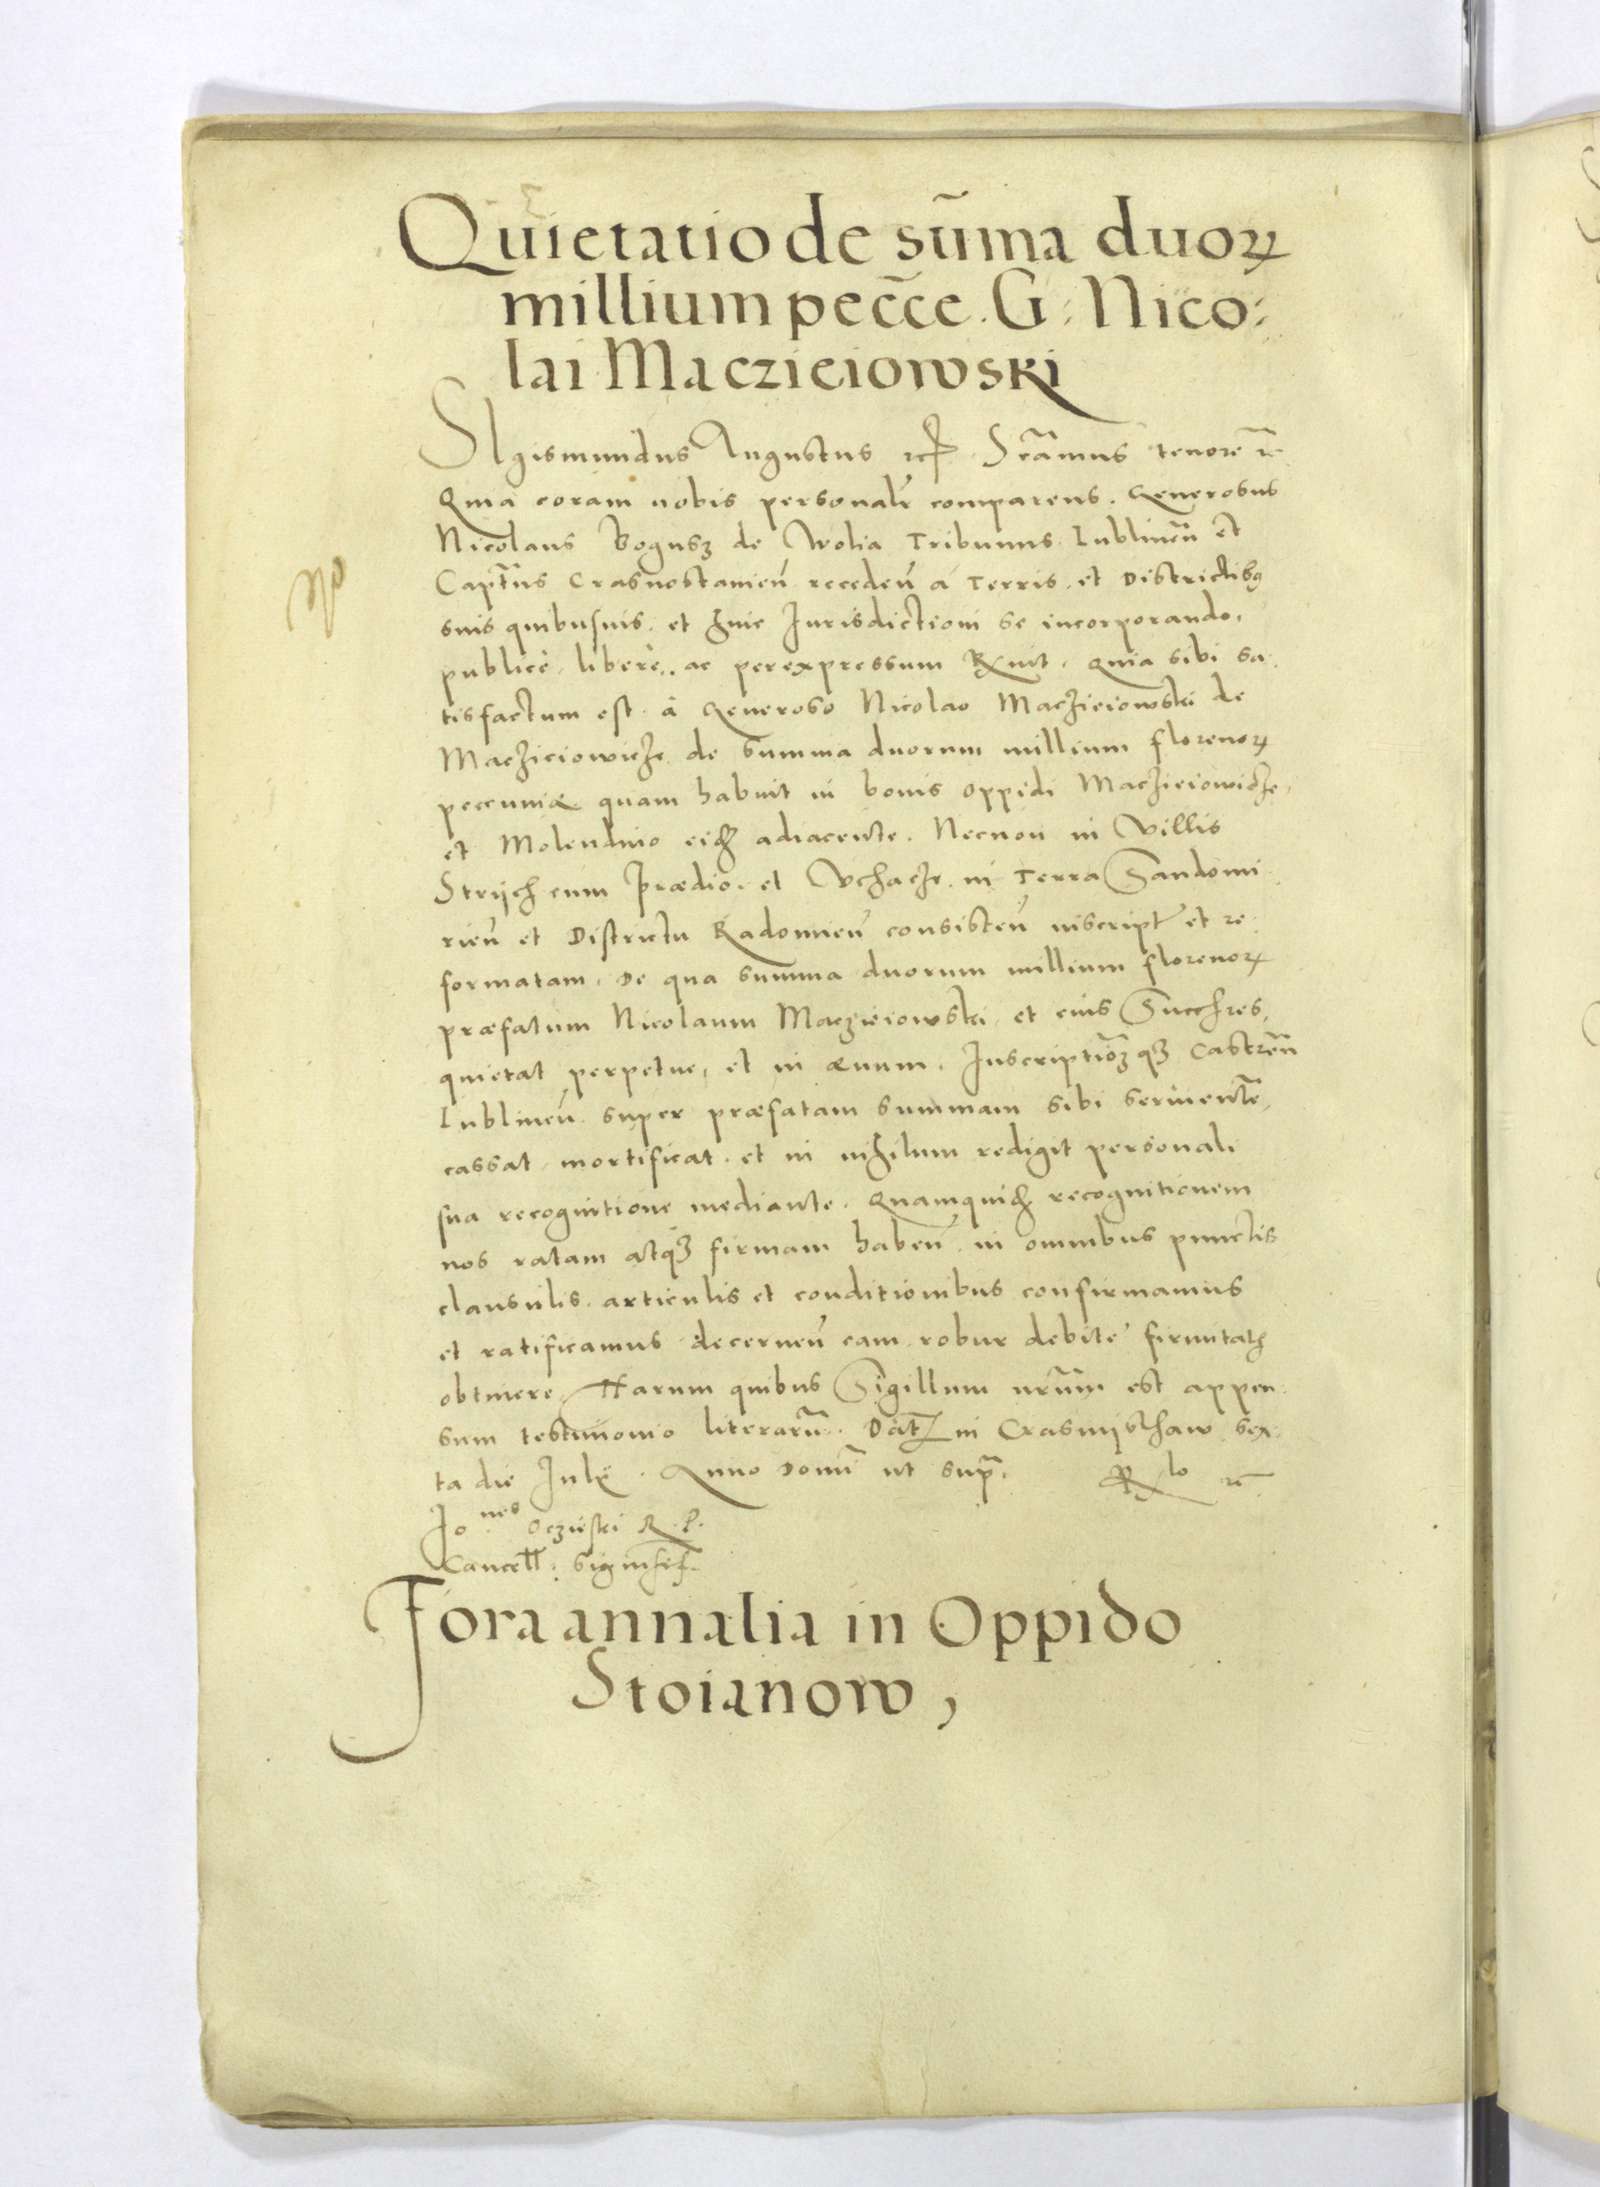 Quietatio de sūma duoꝝ
millium pecc̄e. G. Nico:
lai Maczieiowski
SIgismundus Augustus etc. Sc̄amus tenore etc.
Quia coram nobis personalr̄ comparens. Generosus
Nicolaus Bogusz de Wolia Tribunus Lublineñ et
Capt̄us Crasnostauień recedeñ á Terris. et Districtibꝫ
suis quibusuis. et huic Iurisdictioni se incorporando,
publicè. liberè. ac per expressum Rxuit. Quia sibi sa.
tisfactum est. á Generoso Nicolao Maczieiowski de
Maczieiowicze de Summa duorum millium florenoꝝ
peccuniæ quam habuit in bonis oppidi Maczieiowicze,
et Molendino eidē adiacente. Necnon in Villis
Strijch cum Prædio. et Vchacze. in Terra Sandomi
rieñ et Districtu Radomieñ consisteñ inscript̄ et re.
formatam. De qua summa duorum millium florenoꝝ
præfatum Nicolaum Maczieiowski, et eius Succr̄es,
quietat perpetue, et in æuum. Inscriptioēꝫ qꝫ Castreñ
Lublineñ super præfatam summam sibi seruientē,
cassat, mortificat. et in nihilum redigit personali
sua recognitione mediante. Quamquidē recognitionem
nos ratam atqꝫ firmam habeñ. in omnibus punctis
clausulis. articulis et conditionibus confirmamus
et ratificamus decerneñ eam robur debitē firmitatis
obtinere. Harum quibus Sigillum nr̄um est appen
sum testimonio literarū. Dat in Crasnijsthaw sex
ta die Iulÿ. Anno Domī ut supr̄.  Rxlo etc.
Iones Oczieski R. P.
Cancell. sig
Fora annalia in Oppido
Stoianow,